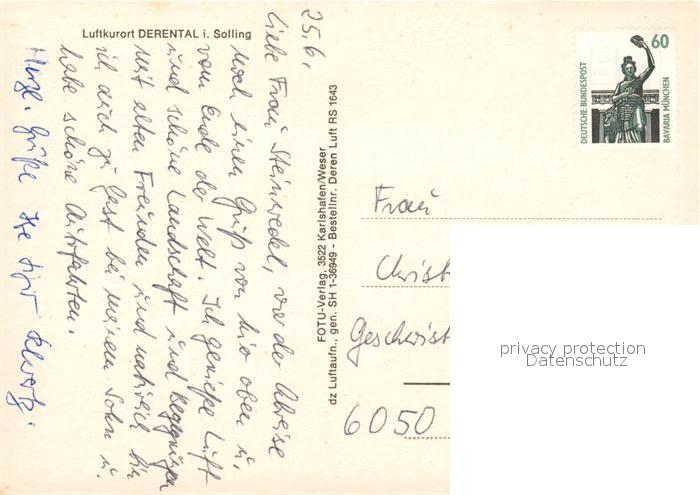 Luftkurort DERENTAL i. Solling
25.6.
Liebe Frau Steinwedel, vor der Abreise
noch einen Gruß von hier oben u.
vom Ende der Welt. Ich genieße Luft
und schöne Landschaft und Begegnungen
mit alten Freunden und natürlich bin
ich auch zu Gast bei meinem Sohn u.
habe schöne Autofahrten.
Herzl. Grüße Ihre
FOTU-Verlag, 3522 Karlshafen/Weser
dz Luftaufn., gen. SH 1-36949 - Bestellnr. Deren Luft RS 1643
60
DEUTSCHE BUNDESPOST
BAVARIA MÜNCHEN
Frau
Christ
Geschwist
6050
privacy protection
Datenschutz